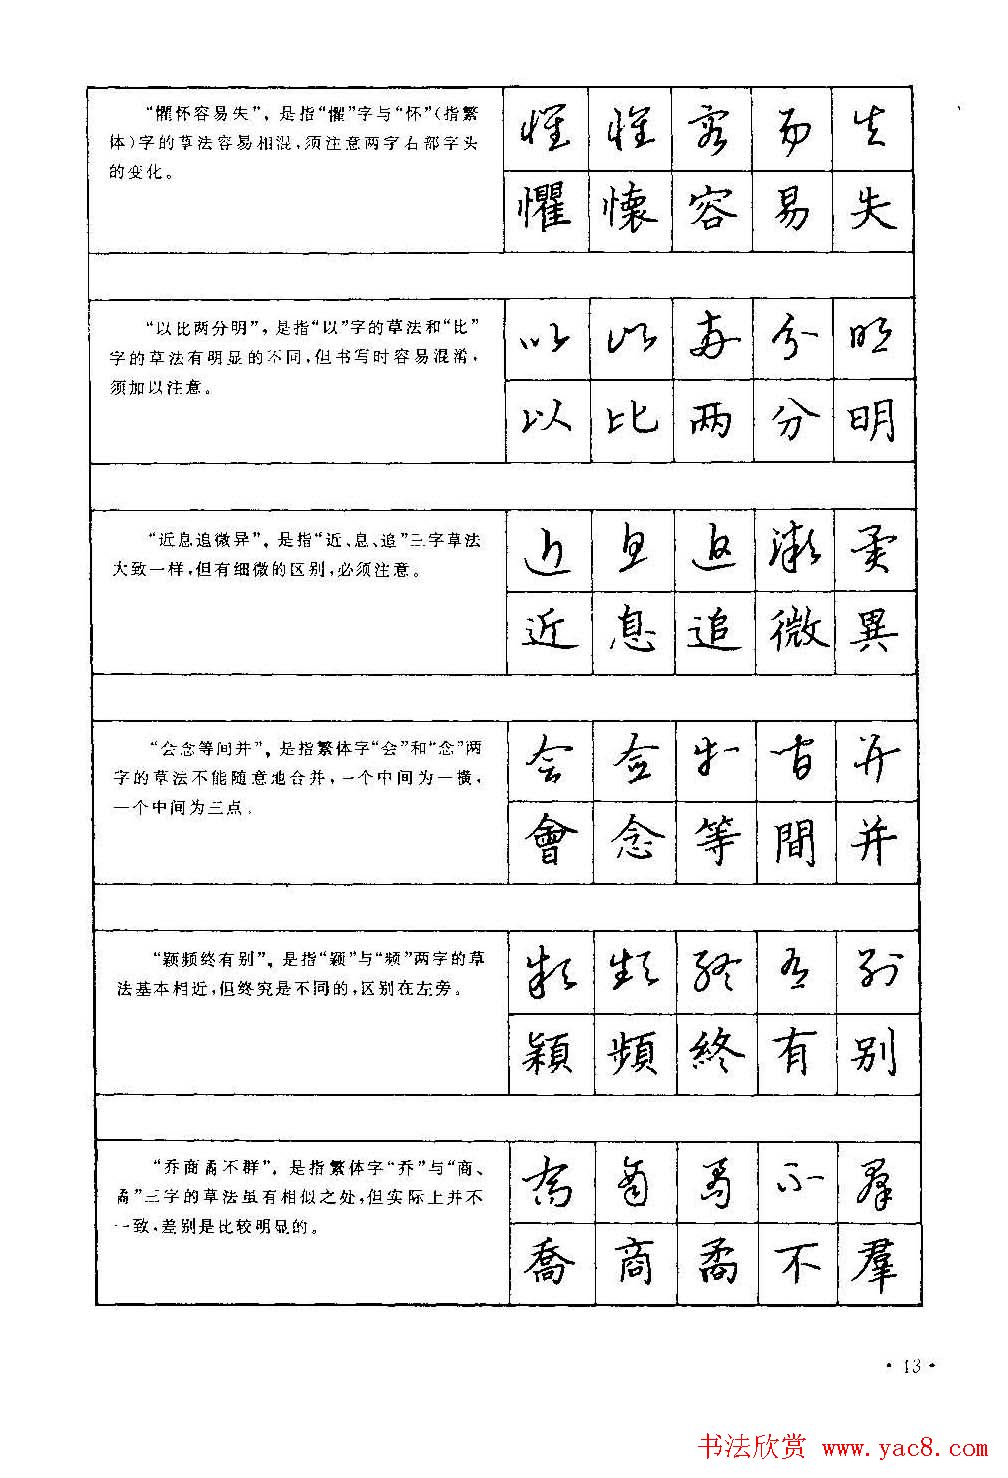 “懼怀容易失”，是指“懼”字与“怀”(指繁
体)字的草法容易相混，须注意两字右部字头
的变化。
懼 懷 容 易 失
懼 懷 容 易 失
“以比两分明”，是指“以”字的草法和“比”
字的草法有明显的不同，但书写时容易混淆，
须加以注意。
以 比 两 分 明
以 比 两 分 明
“近息追微异”，是指“近、息、追”三字草法
大致一样，但有细微的区别，必须注意。
近 息 追 微 異
近 息 追 微 異
“会念等间并”，是指繁体字“会”和“念”两
字的草法不能随意地合并，一个中间为一横，
一个中间为三点。
會 念 等 間 并
會 念 等 間 并
“颖频终有别”，是指“颖”与“频”两字的草
法基本相近，但终究是不同的，区别在左旁。
穎 頻 終 有 别
穎 頻 終 有 别
“乔商矞不群”，是指繁体字“乔”与“商、
矞”三字的草法虽有相似之处，但实际上并不
一致，差别是比较明显的。
喬 商 矞 不 羣
喬 商 矞 不 羣
·13·
书法欣赏 www.yac8.com